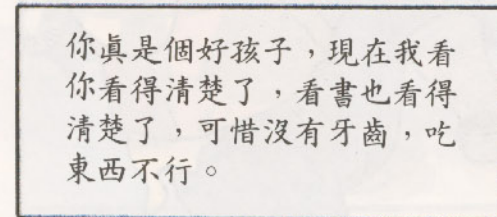 你眞是個好孩子，現在我看
你看得清楚了，看書也看得
清楚了，可惜沒有牙齒，吃
東西不行。